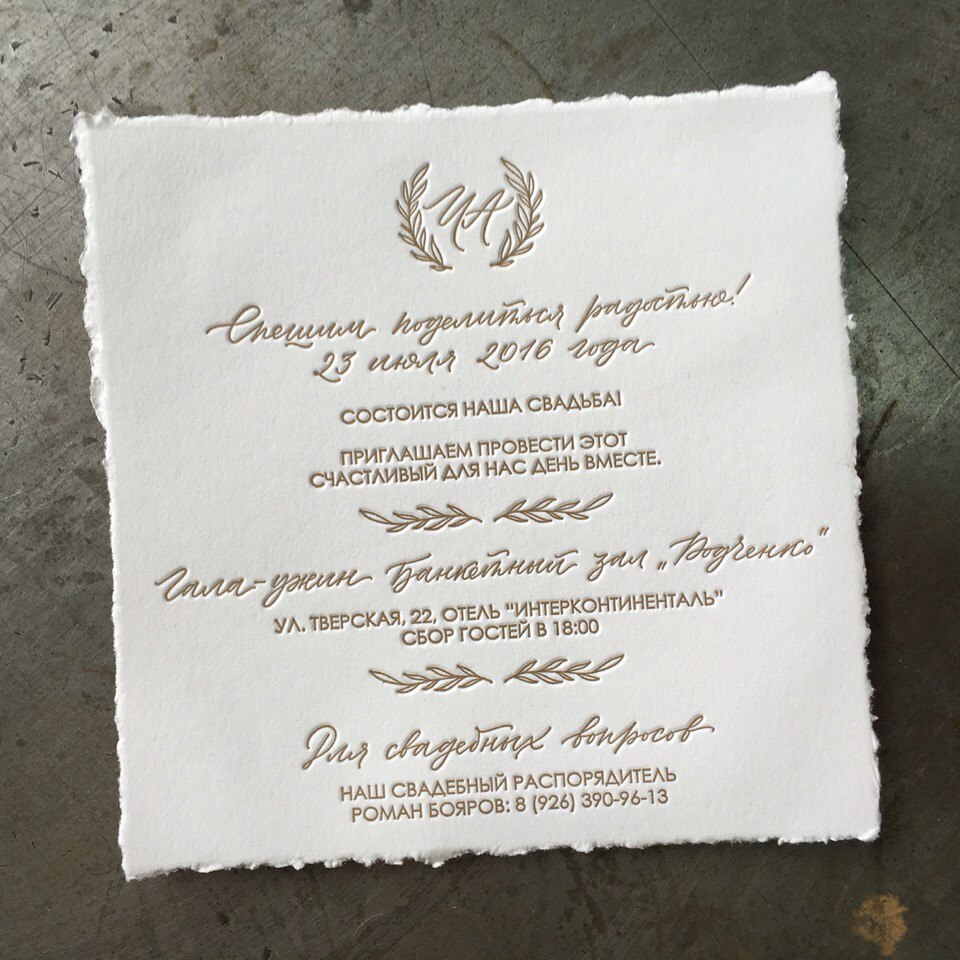 ЧА
Спешим поделиться радостью!
23 июля 2016 года
СОСТОИТСЯ НАША СВАДЬБА!
ПРИГЛАШАЕМ ПРОВЕСТИ ЭТОТ
СЧАСТЛИВЫЙ ДЛЯ НАС ДЕНЬ ВМЕСТЕ.
Гала-ужин Банкетный зал „Родченко"
УЛ. ТВЕРСКАЯ, 22, ОТЕЛЬ "ИНТЕРКОНТИНЕНТАЛЬ"
СБОР ГОСТЕЙ В 18:00
Для свадебных вопросов
НАШ СВАДЕБНЫЙ РАСПОРЯДИТЕЛЬ
РОМАН БОЯРОВ: 8 (926) 390-96-13